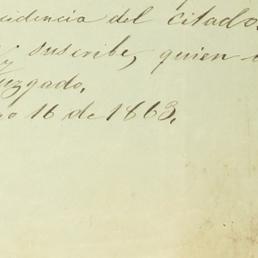 cidencia del citado
suscribe, quien
uzgado.
o 16 de 1863.